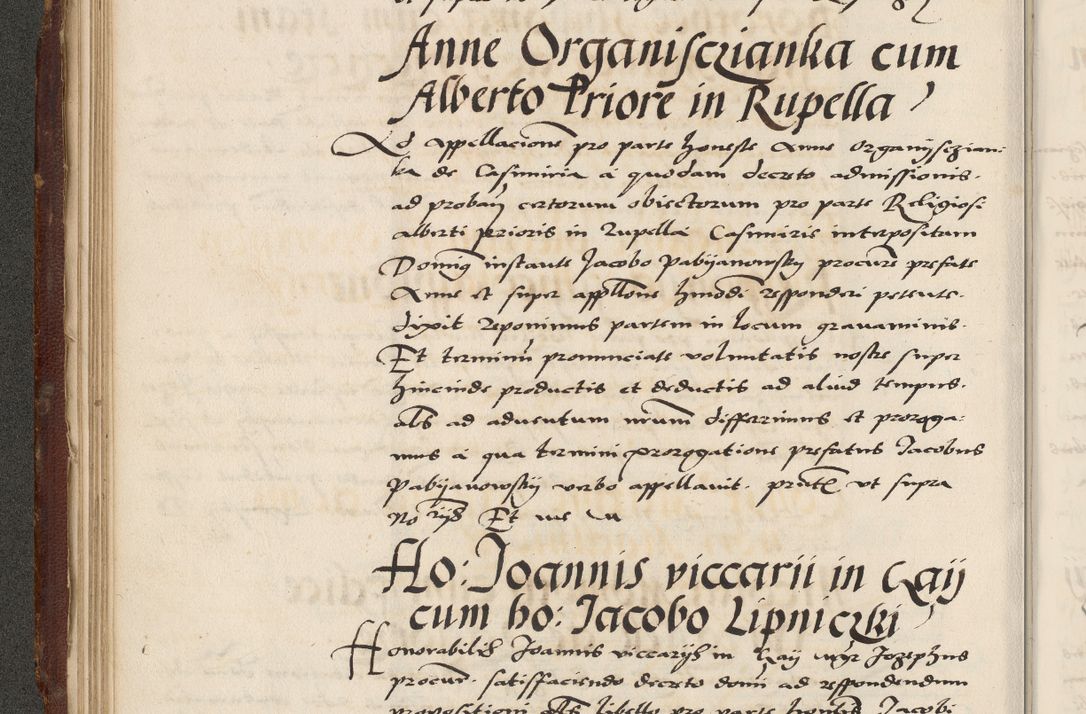 Anne Organisczianka cum
Alberto Priore in Rupella
Ad appellacionem pro parte honeste Anne Organysczian:
ka de Casimiria a quodam decreto admissionis
ad proban certorum obiectorum pro parte Religiosi
alberti prioris in Rupella Casimiris interpositum
Domin9 instante Jacobo Pabyanowsky procure prefate
Anne et super appllone hmodi responderi petente.
dixit reponimus partem in locum gravaminis.
Et terminum pronunciate voluntatis nostre super
hincinde productis et deductis ad aliud tempus.
als ad adventum nrum differrimus et proroga:
mus a qua termini prorogatione prefatus Jacobus
Pabyanowsky verbo appellavit. prntibus ut supra
No rijs Et me
Ho: Joannis viccarii in Gaij
cum ho: Jacobo Lipniczki
Honorabilis Joannis viccarys in Gaij mgr Jozephus
procur. satisfaciendo decreto domi ad respondendum
propositioni als libello pro parte honbis Jacobi